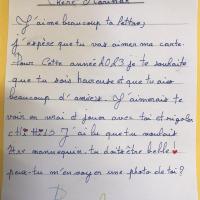 Chère
J'aime beaucoup ta lettre,
J'espère que tu vas aimer ma carte.
Pour cette année 2023 je te souhaite
que tu sois heureuse et que tu aies
beaucoup d'amies. J'aimerais te
voir en vrai et jouer avec toi et rigoler
J'ai lu que tu voulais
être mannequin, tu dois être belle
peux-tu m'envoyer une photo de toi ?